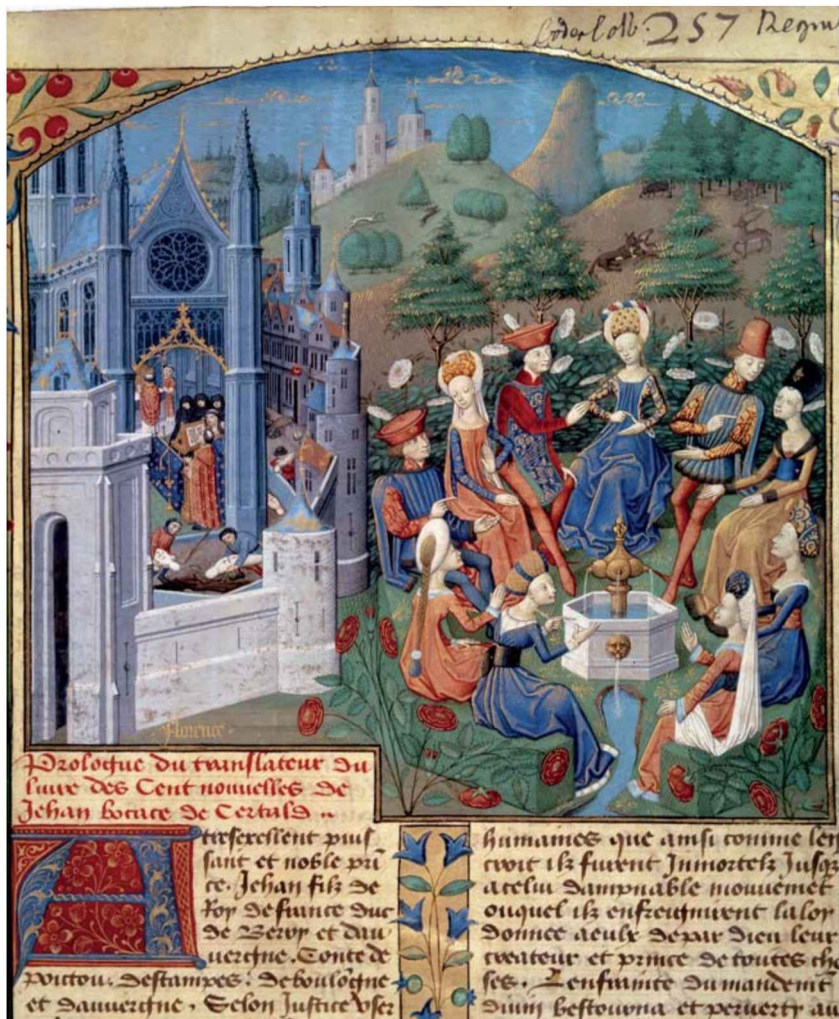 257 Regius
florence
Prologue du translateur du
liure des Cent nouvelles de
Jehan bocace de Certald
A tresexellent puis
sant et noble pri
ce. Jehan filz de
Roy de france duc
de Berry et dau
uergne. Conte de
poictou. destampes. de boulogne
et dauuergne. Selon Justice user
humaines que ainsi comme len
croit ilz furent Inmortelz Jusqz
a celui dampnable mouuemet
ouquel ilz enfreignirent la loy
donnee a eulx de par dieu leur
createur et prince de toutes cho
ses. Lenfrainte du mandemet
diuin bestourna et peruerty au